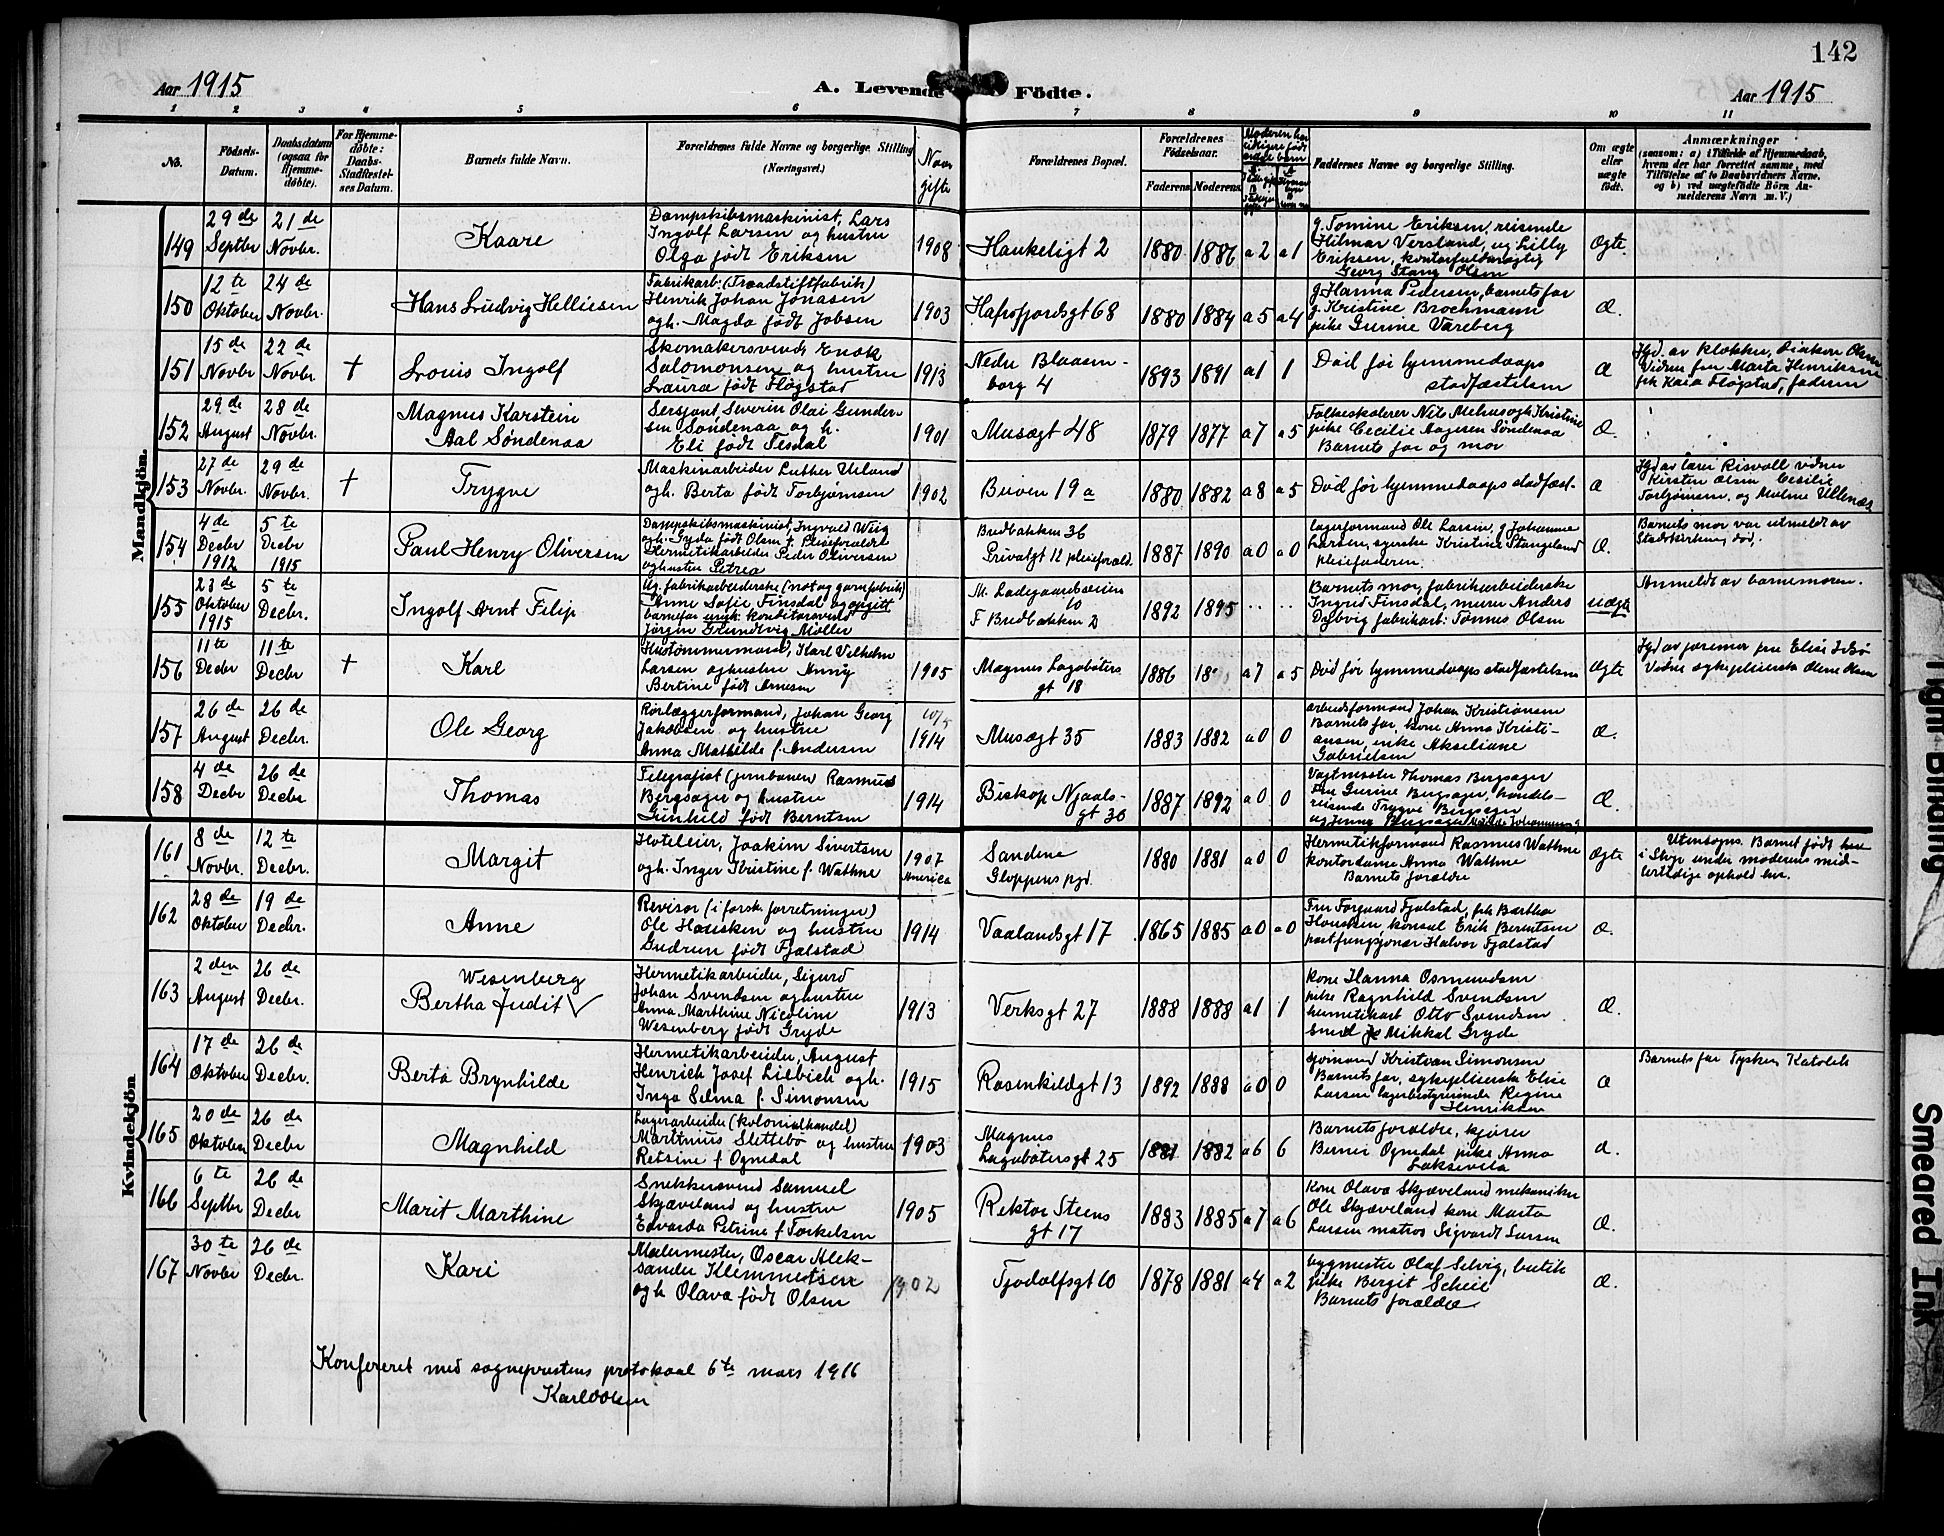 142
Aar 1915
A. Levende Födte.
Aar 1915
1 2 3 4 5 6 7 8 9 10 11
No.
Födsels-
Datum.
Daabsdatum
(ogsaa for
Hjemme-
döbte).
For Hjemme-
döbte:
Daabs-
Stadfæstel-
ses Datum.
Barnets fulde Navn.
Forældrenes fulde Navne og borgerlige Stilling
(Næringsvei.)
Naar
gifte
Forældrenes Bopæl.
Forældrenes
Födselsaar.
Faderens
Moderens
Faddernes Navne og borgerlige Stilling.
Om ægte
eller
uægte
födt.
Anmærkninger
(saasom: a) i Tilfælde af Hjemmedaab,
hvem der har forrettet samme, med
Tilföielse af to Daabsvidners Navne,
og b) ved uægtefödte Börn An-
melderens Navn m. V.)
Mandkjön.
149
29 de
Septbr
21 de
Novbr.
Kaare
Dampskibsmaskinist, Lars
Ingolf Larsen og hustru
Olga født Eriksen
1908
Haukeligt 2
1880 1886 a 2 a 1
g. Tomine Eriksen, reisende
Hilmar Versland, ug Lilly
Eriksen, kontorfuldmægtig
Georg Stang Olsen
Ægte.
150
12 te
Oktober
24 de
Novbr.
Hans Ludvig Helliesen
Fabrikarb: (Traadstiftfabrik)
Henrik Johan Jonasen
ogh. Magda født Jobsen
1903
Hafrsfjordsgt 68
1880 1884 a 5 a 4
g. Hanna Pedersen, barnets far
g. Kristine Brochmann
pike Gurine Vareberg
Æ.
151
15 de
Novbr
22 de
Novbr
†
Louis Ingolf
Skomakersvend, Enok
Salomonsen og hustru
Laura født Fløgstad
1913
Nedre Blaasen-
borg 4
1893 1891 a 1 1
Død før hjemmedaaps
stadfæstelsen
Æ
Hjd. av klokker, diakon Olsen
Vidner fru Marta Henriksen
frk Kaia Fløgstad, faderen
152
29 de
August
28 de
Novbr.
Magnus Karstein
Aal Søndenaa
Sersjant Severin Olai Gunder-
sen Søndenaa og h.
Eli født Tesdal
1901
Musægt 48
1879 1877 a 7 a 5
Folkeskolerer Nils Melhus ogh Kristine
pike Cecilie Aagesen Søndenaa
Barnets far og mor
Æ.
153
27 de
Novbr.
29 de
Novbr.
†
Trygve
Maskinarbeider Luther Ueland
ogh. Berta født Torbjørnsen
1902
Breven 19 a
1880 1882 a 8 a 5
Død før hjemmedaaps stadfæst.
Æ
Hjd av lærer Risvoll vidner
Kirsten Olsen Cecilie
Torbjørnsen, og Malene Ullenæs
154
4 de
Decbr
1912
5 te
Decbr
1915
Paul Henry Oliversen
Dampskibsmaskinist, Ingvald Wiig
ogh. Gyda født Olsen †. Pleieforældre
Hermetikarbeider Peder Oliversen
og hustru Petrea
Bredbakken 36
Privatgt 12 pleieforæld.
1887 1890 a 0 a 0
Lagerformand Ole Larsen, g Johanne
Larsen, syerske Kristine Stangeland
pleiefaderen.
Æ.
Barnets mor var utmeldt av
Statskirken, død.
155
23 de
Oktober
1915
5 te
Decbr.
Ingolf Arnt Filip
Ug. fabrikarbeiderske (not og garnfabrik)
Anne Sofie Finsdal og opgitt
barnefar ungk: konditorsvend
Jørgen Grundtvig Møller
M. Ladegaardsveien
10
F Bredbakken 2
1892 1895 .. ..
Barnets mor, fabrikarbeiderske
Ingrid Finsdal, murer Anders
Dybvig fabrikarb: Tønnes Olsen
uægte
Anmeldt av barnemoren.
156
11 te
Decbr
11 te
Decbr.
†
Karl
Hustømmermand, Karl Vilhelm
Larsen og hustru Anny
Bertine født Arnesen
1905
Magnus Lagabøters
gt 18
1886 18 a 7 a 5
Død før hjemmedaaps stadfæstelsen
Ægte
Hjd av jormor fru Elise Isbø
Vidne sykepleierske Olene Olsen
157
26 de
August
26 de
Decbr.
Ole Georg
Rørlæggerformand, Johan Georg
Jakobsen og hustru
Anna Mathilde f. Andersen
10/5
1914
Musægt 35
1883 1882 a 0 0
arbeidsformand Johan Kristiansen
Barnets far, kone Anna Kristi-
ansen, enke Akseliane
Gabrielsen
Æ.
158
4 de
Decbr
26 de
Decbr
Thomas
Telegrafist (jernbanen) Rasmus
Bergsager og hustru
Gunhild født Berntsen
1914
Biskop Njaals-
gt 30
1887 1892 a 0 0
Vagtmester Thomas Bergsager
Fru Gurine Bergsager, handels-
reisende Trygve Bergsager
Æ.
Kvindekjön
161
8 de
Novbr.
12 te
Decbr.
Margit
Hoteleier, Joakim Sivertsen
ogh. Inger Kristine f. Wathne
1907
America
Sandene
Gloppens pgd.
1880 1881 a 0 0
Hermetikformand Rasmus Wathne
kontordame Anna Wathne
Barnets forældre
Ægte
Utensogns. Barnet født her
i Stvgr under moderens mid-
lertidige ophold her.
162
28 de
Oktober
19 de
Decbr.
Anne
Revisor (i forsk. forretninger)
Ole Hausken og hustru
Gudrun født Fjalstad
1914
Vaalandsgt 17
1865 1885 a 0 a 0
Fru Torgaard Fjalstad, frk Bertha
Hausken, konsul Erik Berentsen
postfungsjonær Halvor Fjalstad
Æ.
163
2 den
August
26 de
Decbr.
Wesenberg
Bertha Judit √
Hermetikarbeider, Sigurd
Johan Svendsen og hustru
Anna Marthine Nicoline
Wesenberg født Gryde
1913
Verksgt 27
1888 1888 a 1 1
kone Hanna Osmundsen
pike Ragnhild Svendsen
hermetikarb Otto Svendsen
smed Mikkal Gryde
Æ.
164
17 de
Oktober
26 de
Decbr.
Berta Brynhilde
Hermetikarbeider, August
Henrich Josef Liebich ogh.
Inga Selma f. Simonsen
1915
Rosenkildgt 13
1892 1888 a 0 0
gvinand Kristian Simonsen
Barnets far, sykepleierske Elise
Larsen lagerbestyrerinde Regine
Henriksen
Æ
Barnets far Tysker, Katolik
165
20 de
Oktober
26 de
Decbr
Magnhild
Lagerarbeider (kolonialhandel)
Martinius Slettebø og hustru
Retsine f Ognedal
1903
Magnus
Lagabøtersgt 25
1881 1882 a 6 6
Barnets forældre, kjører
Berner Ognedal pike Anna
Laksevela
Æ.
166
6 te
Septbr
26 de
Decbr
Marit Marthine
Snekkersvend Samuel
Skjæveland og hustru
Edvarda Petrine f Torkelsen
1905
Rektor Steens
gt 17
1883 1885 a 7 a 6
Kone Olava Skjæveland mekaniker
Ole Skjæveland kone Marta
Larsen matros Sigvardt Larsen
Æ.
167
30 te
Novbr
26 de
Decbr.
Kari
Malermester, Oscar Alek-
sander Klemmetsen
ogh Olava født Olsen
1902
Tjodolfsgt 10
1878 1881 a 4 a 2
bygmester Olaf Selvig, butik
pike Bergit Scheie
Barnets forældre
Æ.
Konfereret med sogneprestens protokoal 6 te mars 1916
Karl O Olsen
Tight Binding
Smeared Ink